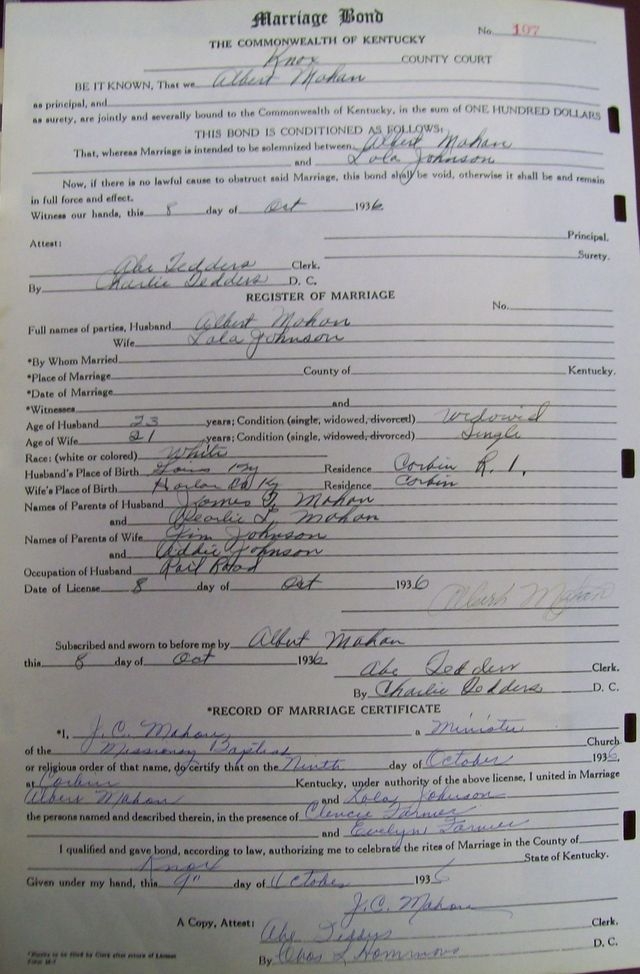 Marriage Bond
No. 107
THE COMMONWEALTH OF KENTUCKY
Knox COUNTY COURT
BE IT KNOWN, That we Albert Mahan
as principal, and
as surety, are jointly and severally bound to the Commonwealth of Kentucky, in the sum of ONE HUNDRED DOLLARS
THIS BOND IS CONDITIONED AS FOLLOWS:
That, whereas Marriage is intended to be solemnized between Albert Mahan
and Lola Johnson
Now, if there is no lawful cause to obstruct said Marriage, this bond shall be void, otherwise it shall be and remain
in full force and effect.
Witness our hands, this 8 day of Oct 1936
Principal.
Attest:
Surety.
Abe Dedders Clerk.
By Charlie Dedders D. C.
REGISTER OF MARRIAGE
No.
Full names of parties, Husband Albert Mahan
Wife Lola Johnson
*By Whom Married
*Place of Marriage County of Kentucky.
*Date of Marriage
*Witnesses and
Age of Husband 23 years; Condition (single, widowed, divorced) Widowed
Age of Wife 21 years; Condition (single, widowed, divorced) Single
Race: (white or colored) White
Husband's Place of Birth Ky Residence Corbin R. 1.
Wife's Place of Birth Harlan Co Ky Residence Corbin
Names of Parents of Husband James Mahan
and Pearlie L. Mahan
Names of Parents of Wife Jim Johnson
and Addie Johnson
Occupation of Husband Rail Road
Date of License 8 day of Oct 1936
Albert Mahan
Subscribed and sworn to before me by Albert Mahan
this 8 day of Oct 1936
Abe Dedders Clerk.
By Charlie Dedders D. C.
*RECORD OF MARRIAGE CERTIFICATE
*I, J.C. Mahan, a Minister
of the Missionary Baptist Church
or religious order of that name, do certify that on the Ninth day of October 1936,
at Corbin Kentucky, under authority of the above license, I united in Marriage
Albert Mahan and Lola Johnson
the persons named and described therein, in the presence of Farmer
and Evelyn Farmer
I qualified and gave bond, according to law, authorizing me to celebrate the rites of Marriage in the County of
Knox State of Kentucky.
Given under my hand, this 9" day of October 1936
J.C. Mahan
A Copy, Attest: Abe Clerk.
By Hammons D. C.